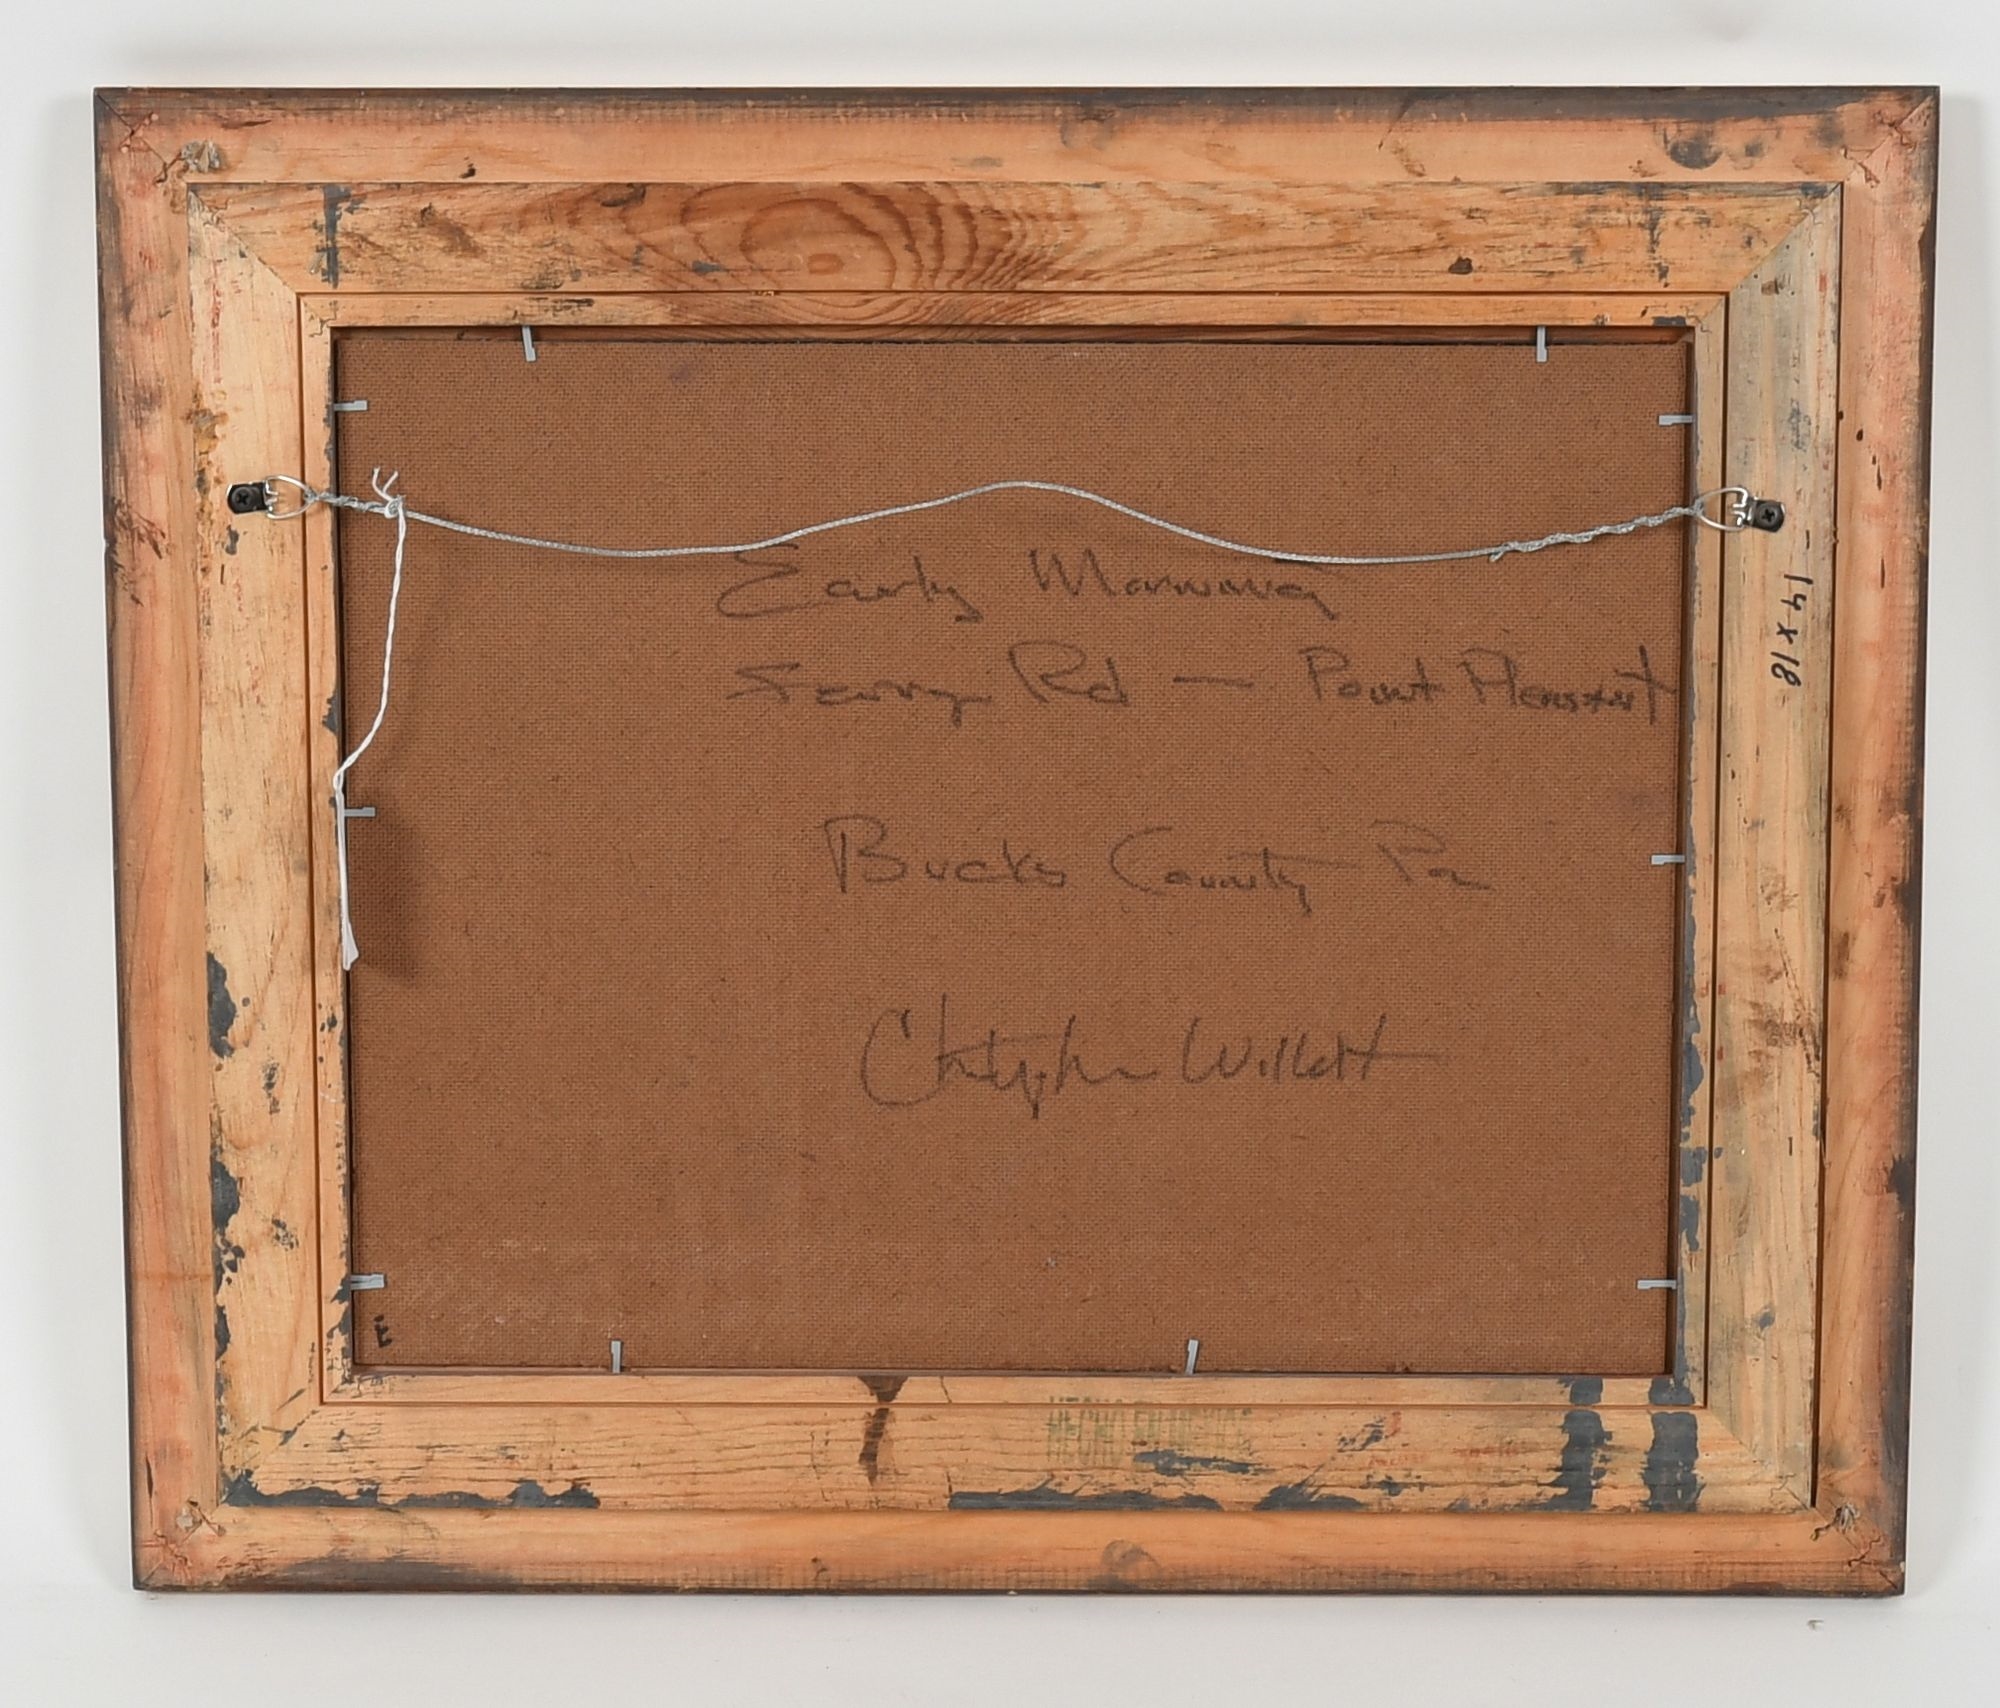 Early Morning
Ferry Rd — Point Pleasant
Bucks County Pa
Christopher Willett
14 x 18
E
HECHO EN MEXICO